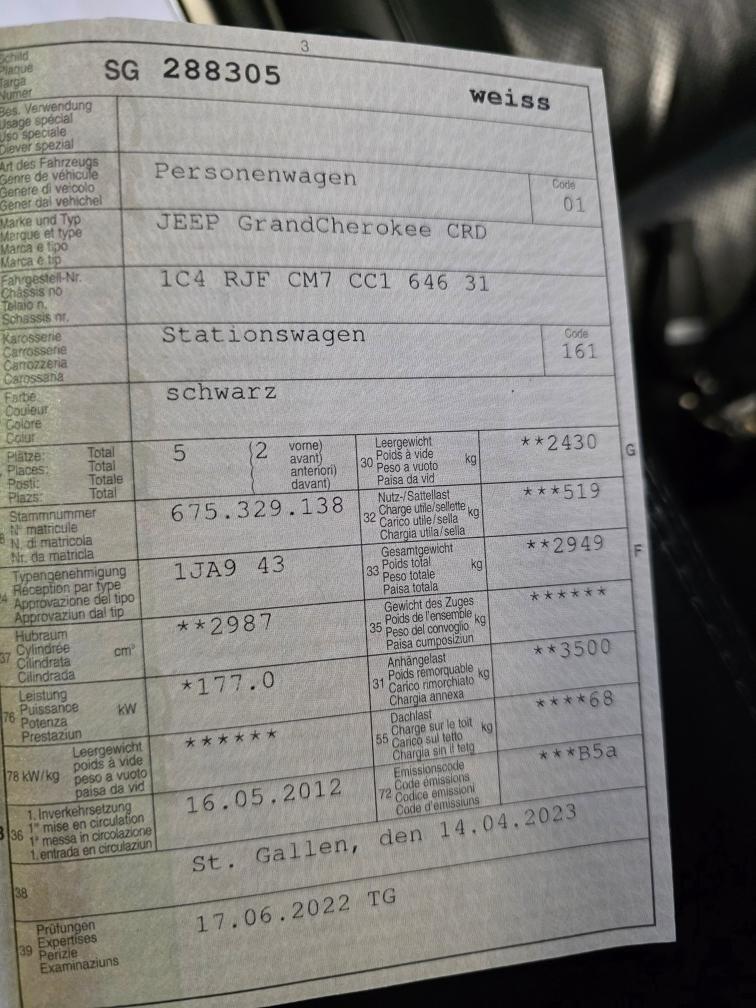 3
Schild
Plaque
Targa
Numer
SG 288305
weiss
Bes. Verwendung
Usage spécial
Uso speciale
Diever spezial
Art des Fahrzeugs
Genre de véhicule
Genere di veicolo
Gener dal vehichel
Personenwagen
Code
01
Marke und Typ
Marque et type
Marca e tipo
Marca e tip
JEEP GrandCherokee CRD
Fahrgestell-Nr.
Châssis no
Telaio n.
Schassis nr.
1C4 RJF CM7 CC1 646 31
Karosserie
Carrosserie
Carrozzeria
Carossaria
Stationswagen
Code
161
Farbe
Couleur
Colore
Colur
schwarz
Plätze: Total
Places: Total
Posti: Totale
Plazs: Total
5 (2 vorne)
avant)
anteriori)
davant)
30 Leergewicht
Poids à vide kg
Peso a vuoto
Paisa da vid
**2430
G
Stammnummer
N° matricule
N. di matricola
Nr. da matricla
675.329.138
32 Nutz-/Sattellast
Charge utile/sellette kg
Carico utile/sella
Chargia utila/sella
***519
Typengenehmigung
Réception par type
Approvazione del tipo
Approvaziun dal tip
1JA9 43
33 Gesamtgewicht
Poids total kg
Peso totale
Paisa totala
**2949
F
37 Hubraum
Cylindrée cm³
Cilindrata
Cilindrada
**2987
35 Gewicht des Zuges
Poids de l'ensemble kg
Peso del convoglio
Paisa cumposiziun
******
76 Leistung
Puissance kW
Potenza
Prestaziun
*177.0
31 Anhängelast
Poids remorquable kg
Carico rimorchiato
Chargia annexa
**3500
78 kW/kg Leergewicht
poids à vide
peso a vuoto
paisa da vid
******
55 Dachlast
Charge sur le toit kg
Carico sul tetto
Chargia sin il tetg
****68
36 1. Inverkehrsetzung
1re mise en circulation
1a messa in circolazione
1. entrada en circulaziun
16.05.2012
72 Emissionscode
Code émissions
Codice emissioni
Code d'emissiuns
***B5a
38
St. Gallen, den 14.04.2023
39 Prüfungen
Expertises
Perizie
Examinaziuns
17.06.2022 TG